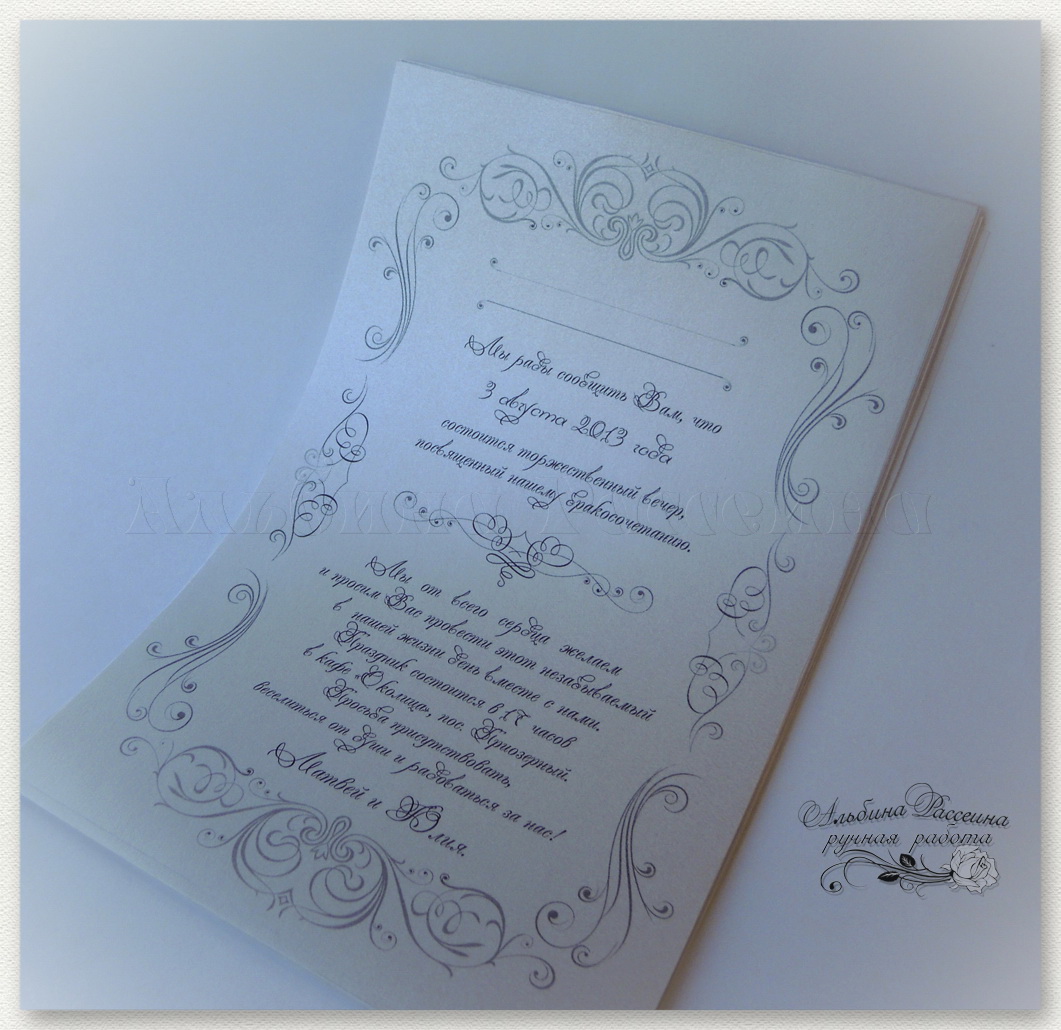 Мы рады сообщить Вам, что
3 августа 2013 года
состоится торжественный вечер,
посвященный нашему бракосочетанию.
Мы от всего сердца желаем
и просим Вас провести этот незабываемый
в нашей жизни день вместе с нами.
Праздник состоится в 17 часов
в кафе „Околица", пос. Приозерный.
Просьба присутствовать,
веселиться от души и радоваться за нас!
Матвей и Юлия.
Альбина Рассеина
Альбина Рассеина
ручная работа